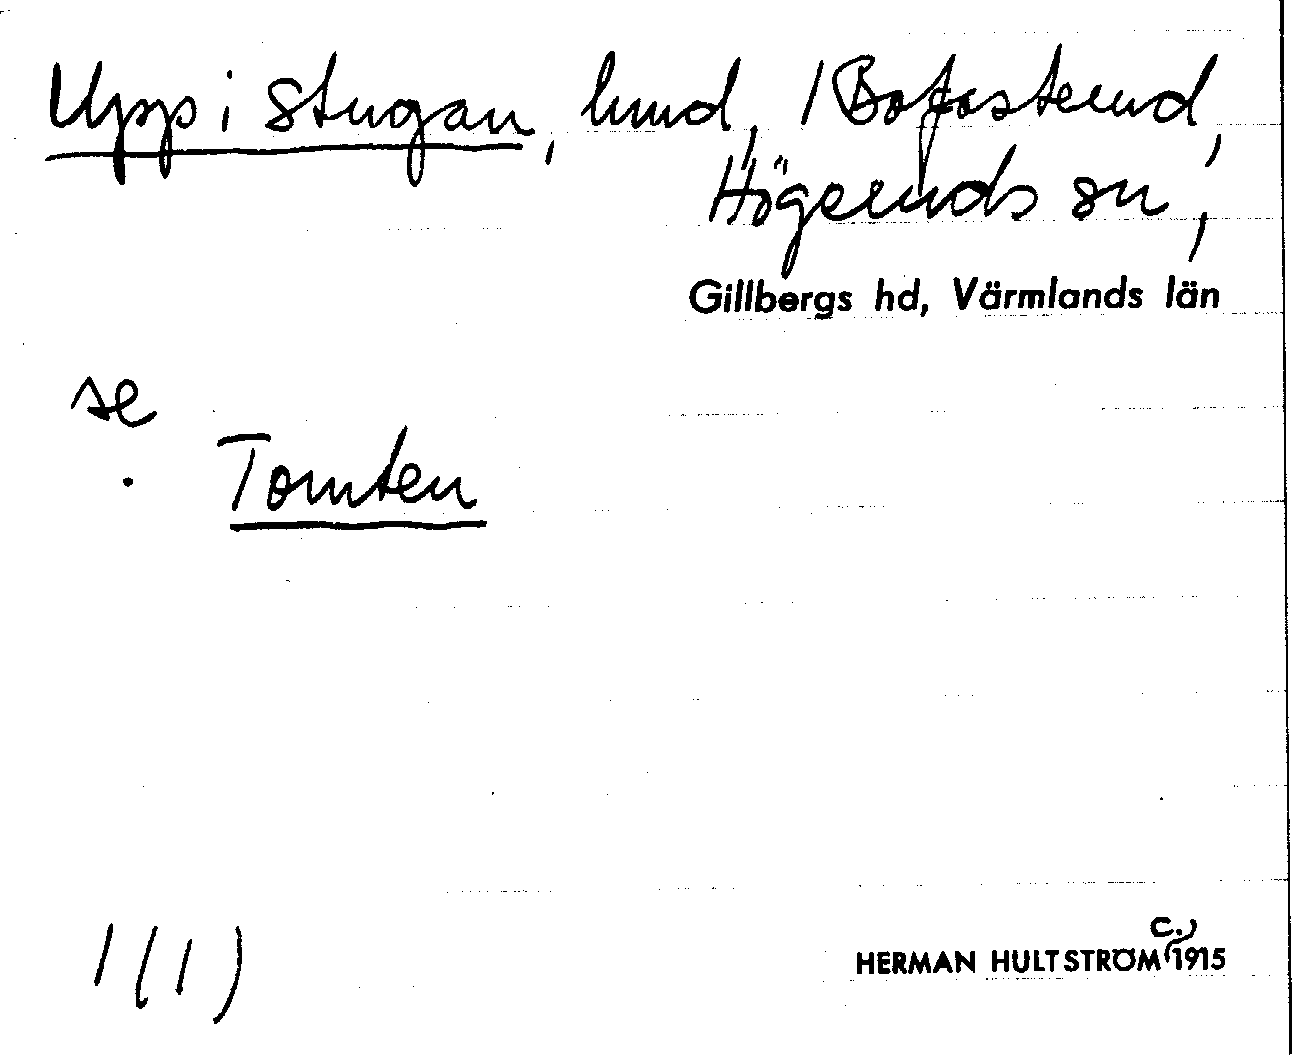 Upp i Stugan, hmd, 1 Bofasterud,
Högeruds sn,
Gillbergs hd, Värmlands län
se
Tomten
1(1)
c.
HERMAN HULTSTRÖM 1915